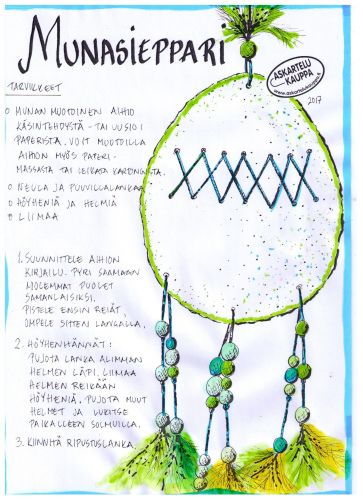 MUNASIEPPARI
ASKARTELU
KAUPPA
2017
TARVIKKEET
o MUNAN MUOTOINEN AIHIO
KÄSINTEHDYSTÄ- TAI UUSIO-
PAPERISTA. VOIT MUOTOILLA
AIHION MYÖS PAPERI-
MASSASTA TAI LEIKATA KARTONGISTA.
o NEULA JA PUUVILLALANKAA
o HÖYHENIÄ JA HELMIÄ
o LIIMAA
1. SUUNNITTELE AIHION
KIRJAILU. PYRI SAAMAAN
MOLEMMAT PUOLET
SAMANLAISIKSI.
PISTELE ENSIN REIÄT,
OMPELE SITTEN LANGALLA.
2. HÖYHENHÄNNÄT:
PUJOTA LANKA ALIMMAN
HELMEN LÄPI. LIIMAA
HELMEN REIKÄÄN
HÖYHENIÄ. PUJOTA MUUT
HELMET JA LUKITSE
PAIKALLEEN SOLMUILLA.
3. KIINNITÄ RIPUSTUSLANKA.